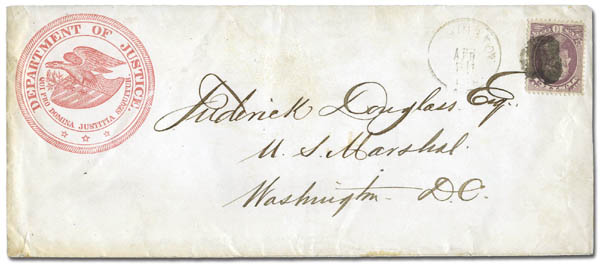 DEPARTMENT OF JUSTICE.
QUI PRO DOMINA JUSTITIA SEQUITUR
APR
10
Frederick Douglass Esq.
U. S. Marshal.
Washington D.C.